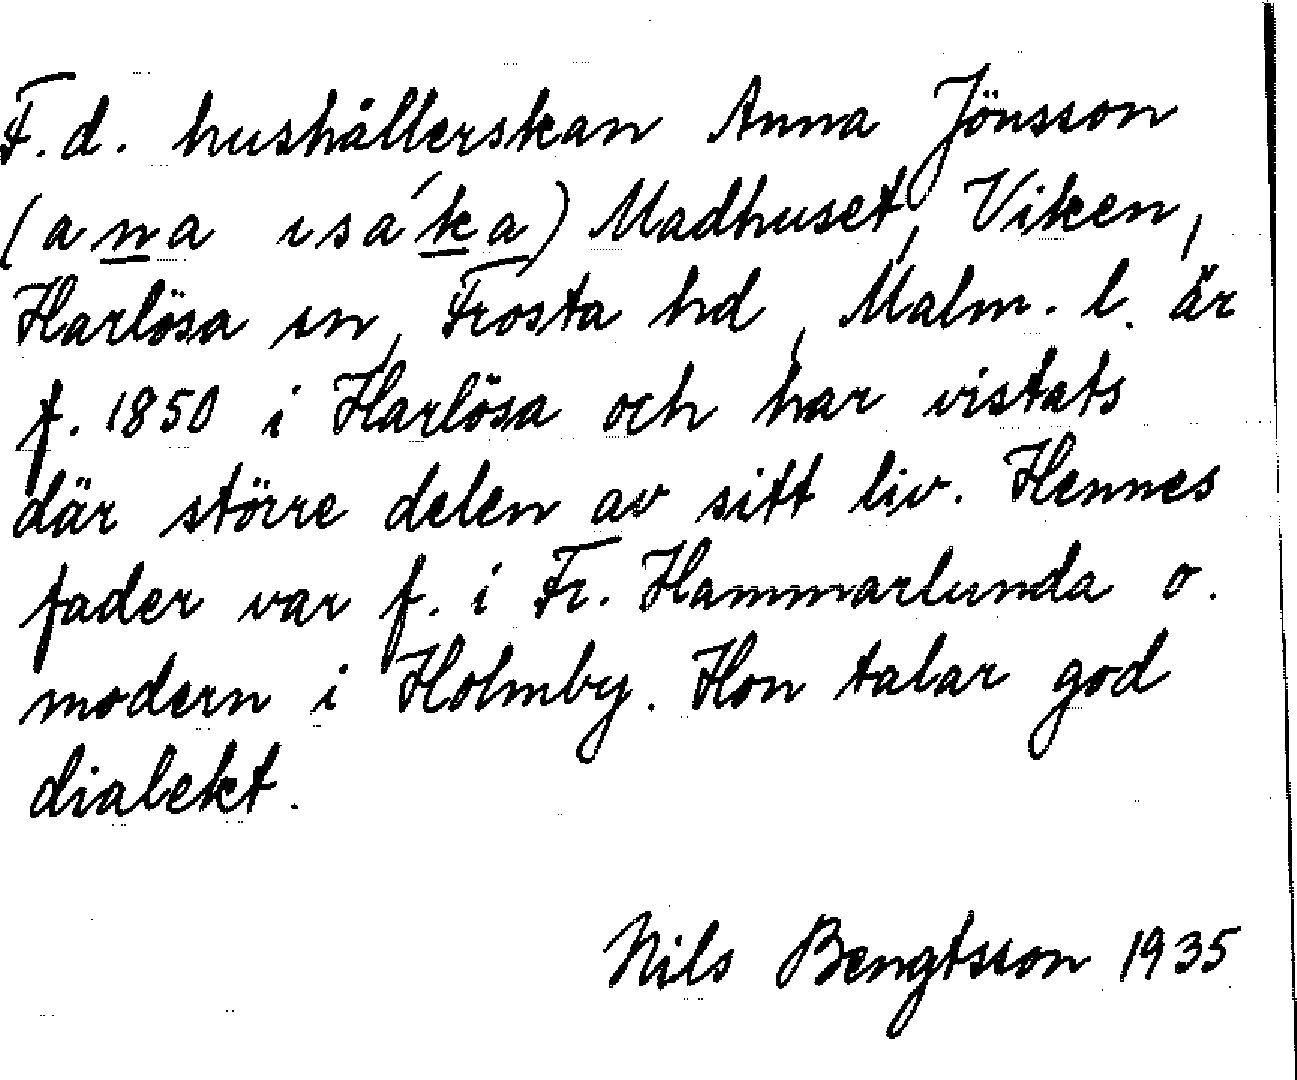 F.d. hushållerskan Anna Jönsson
(ana ısáka) Madhuset, Viken,
Harlösa sn, Frosta hd, Malm. l. är
f. 1850 i Harlösa och har vistats
där större delen av sitt liv. Hennes
fader var f. i Fr. Hammarlunda o.
modern i Holmby. Hon talar god
dialekt.
Nils Bengtsson 1935